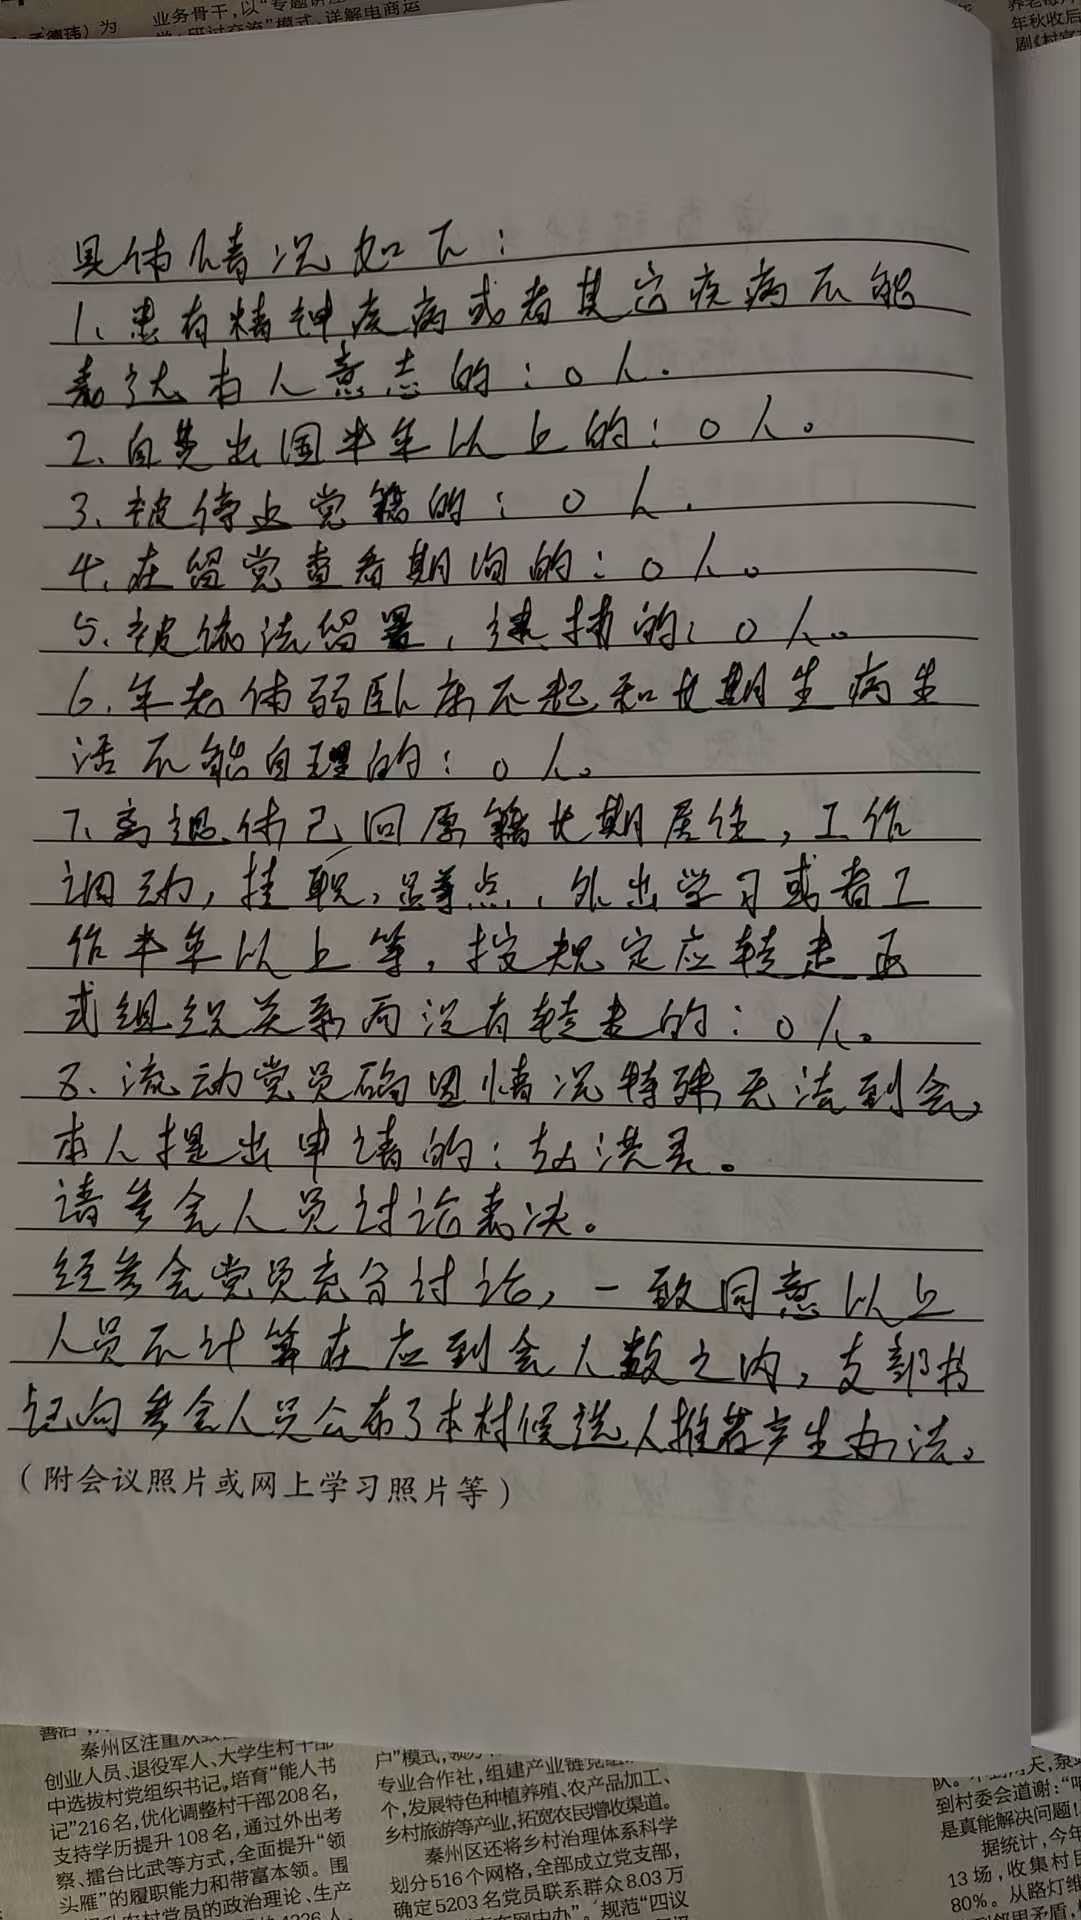 孟德玮）为
业务骨干，以“专题讲
学+研讨交流”模式，详解电商运
年秋收后
具体情况如下：
1、患有精神疾病或者其它疾病不能
表达本人意志的：0人.
2、自费出国半年以上的：0人。
3、被停止党籍的：0人.
4、在留党查看期间的：0人。
5、被依法留置，逮捕的：0人。
6、年老体弱卧床不起和长期生病生
活不能自理的：0人。
7、离退休已回原籍长期居住，工作
调动，挂职，蹲点，外出学习或者工
作半年以上等，按规定应转走正
式组织关系而没有转走的：0人。
8、流动党员确因情况特殊无法到会，
本人提出申请的：赵洪君。
请参会人员讨论表决。
经参会党员充分讨论，一致同意以上
人员不计算在应到会人数之内，支部书
记向参会人员公布了本村候选人推荐产生办法。
（附会议照片或网上学习照片等）
创业人员、退役军人、大学生村干部
中选拔村党组织书记，培育“能人书
记”216名，优化调整村干部208名，
支持学历提升108名，通过外出考
察、擂台比武等方式，全面提升“领
头雁”的履职能力和带富本领。围
农村党员的政治理论、生产
专业合作社，组建产业链党组
个，发展特色种植养殖、农产品加工、
乡村旅游等产业，拓宽农民增收渠道。
秦州区还将乡村治理体系科学
划分516个网格，全部成立党支部，
确定5203名党员联系群众8.03万
规范“四议
到村委会道谢：“咱
是真能解决问题！
据统计，今年
13场，收集村民
80%。从路灯维